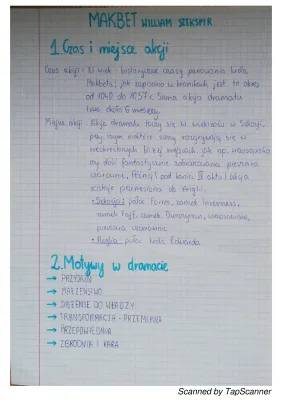 MAKBET WILLIAM SZEKSPIR
1. Czas i miejsce akcji
Czas akcji: XI wiek - historyczne czasy panowania króla
Makbeta; jak zapisano w kronikach jest to okres
od 1040 do 1057r. Sama akcja dramatu
trwa około 6 miesięcy.
Miejsce akcji: Akcja dramatu toczy się w większości w Szkocji,
przy czym niektóre sceny rozgrywają się w
nieokreślonych bliżej miejscach jak np. wrzosowisko
czy dość fantastycznie
później pod koniec aktu akcja
zostaje przeniesiona do Anglii.
- Szkocja: pałac Forres, zamek Inverness,
zamek Fajf, zamek Dunzynan, wrzosowisko,
- Anglia: pałac króla Edwarda.
2. Motywy w dramacie
→ PRZYJAŹŃ
→ MAŁŻEŃSTWO
→ DĄŻENIE DO WŁADZY
→ TRANSFORMACJA - PRZEMIANA
→ PRZEPOWIEDNIA
→ ZBRODNIA I KARA
Scanned by TapScanner